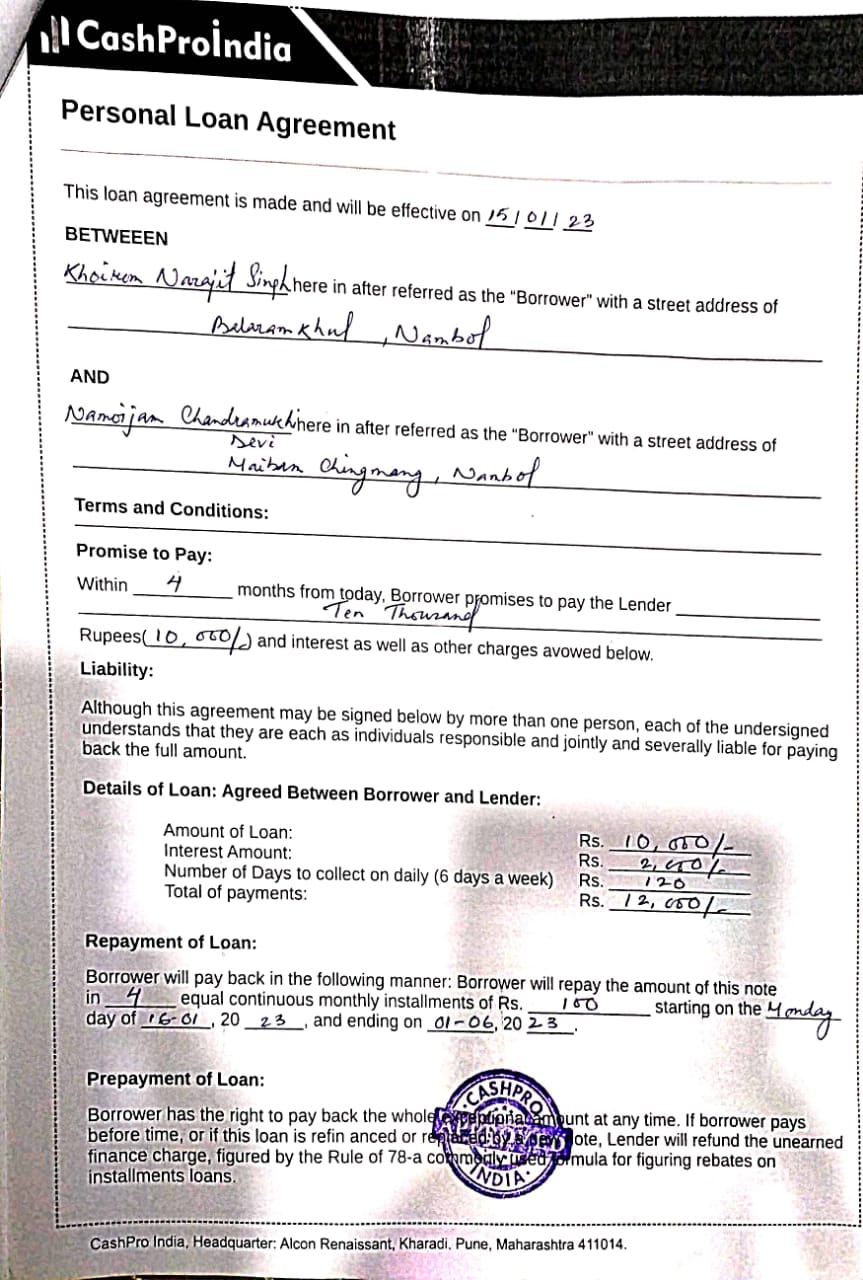 CashProIndia
Personal Loan Agreement
This loan agreement is made and will be effective on 15/01/23
BETWEEEN
Khoirom Narajit Singh here in after referred as the “Borrower” with a street address of
Balaram Khul, Nambol
AND
Namoijam Chandramukhi here in after referred as the “Borrower” with a street address of
Devi
Maibam Chingmang, Nambol
Terms and Conditions:
Promise to Pay:
Within 4 months from today, Borrower promises to pay the Lender
Ten Thousand
Rupees(10,000/-) and interest as well as other charges avowed below.
Liability:
Although this agreement may be signed below by more than one person, each of the undersigned
understands that they are each as individuals responsible and jointly and severally liable for paying
back the full amount.
Details of Loan: Agreed Between Borrower and Lender:
Amount of Loan: Rs. 10,000/-
Interest Amount: Rs. 2,000/-
Number of Days to collect on daily (6 days a week) Rs. 120
Total of payments: Rs. 12,000/-
Repayment of Loan:
Borrower will pay back in the following manner: Borrower will repay the amount of this note
in 4 equal continuous monthly installments of Rs. 100 starting on the Monday
day of 16-01, 20 23, and ending on 01-06, 20 23.
Prepayment of Loan:
CASHPRO
Borrower has the right to pay back the whole exceptional amount at any time. If borrower pays
before time, or if this loan is refin anced or replaced by a new note, Lender will refund the unearned
finance charge, figured by the Rule of 78-a commonly used formula for figuring rebates on
installments loans.
INDIA
CashPro India, Headquarter: Alcon Renaissant, Kharadi, Pune, Maharashtra 411014.